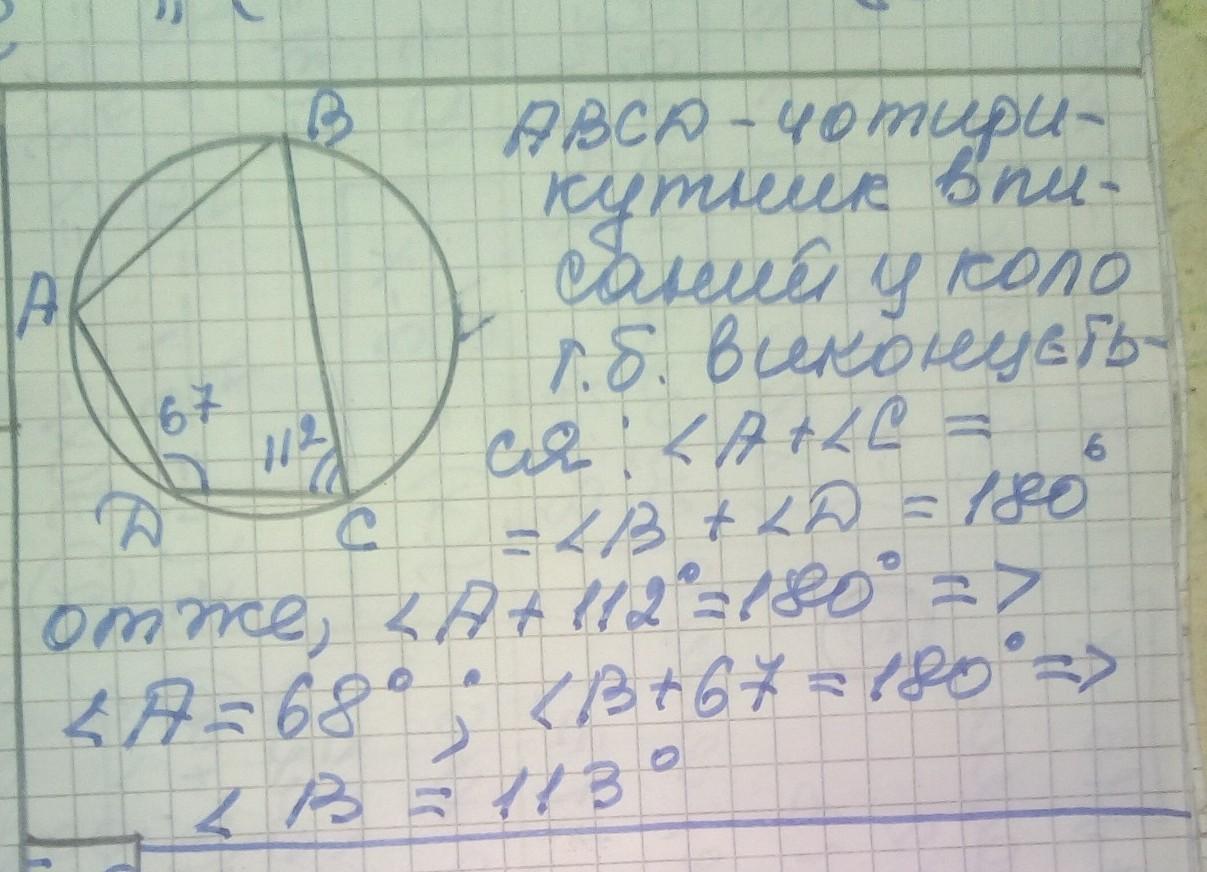 B
A
67
112
D
C
ABCD - чотири-
кутник впи-
саний у коло
т.б. виконуєть-
ся: <A + <C =
= <B + <D = 180°
отже, <A + 112° = 180° =>
<A = 68°; <B + 67 = 180° =>
<B = 113°